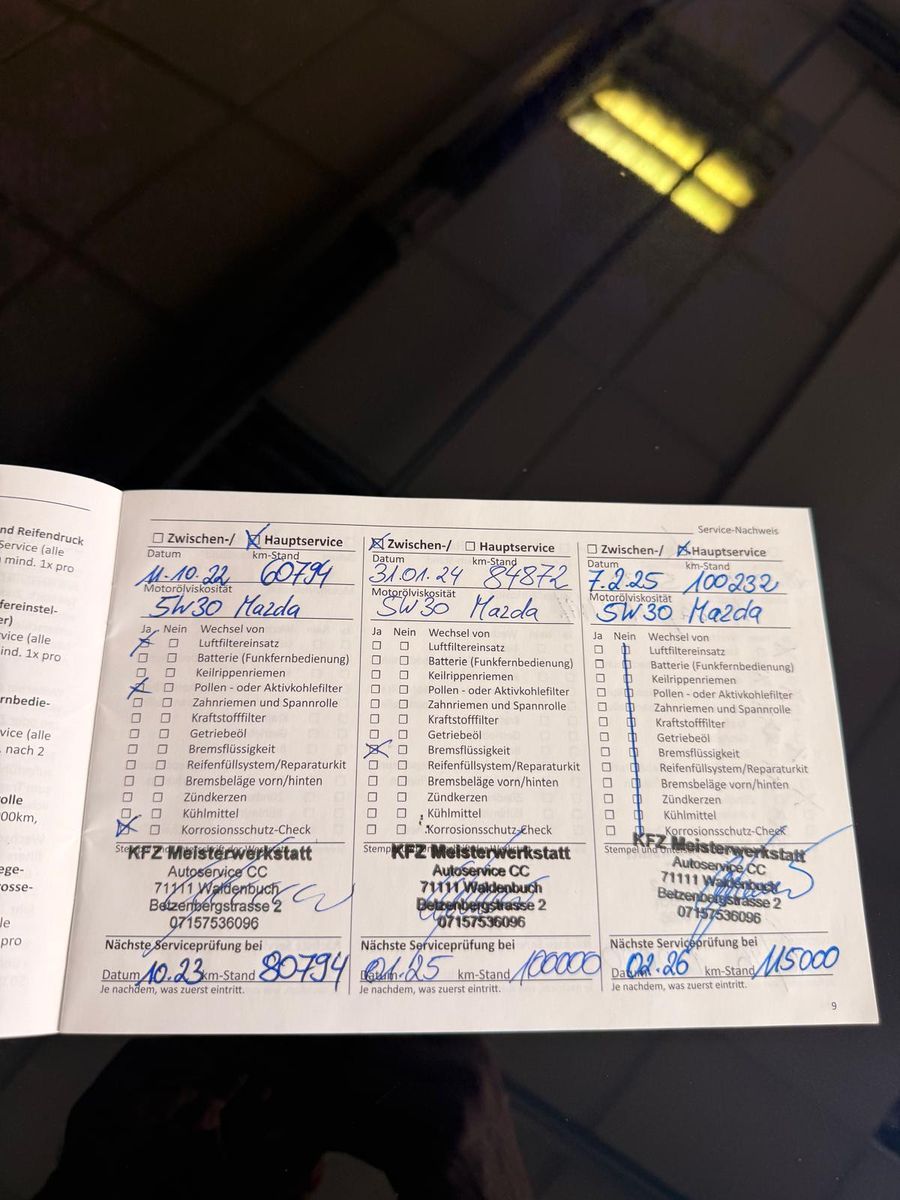 nd Reifendruck
Service (alle
mind. 1x pro
fereinstel-
er)
vice (alle
ind. 1x pro
rnbedie-
vice (alle
nach 2
olle
00km,
ege-
osse-
le
pro
Service-Nachweis
Zwischen-/ Hauptservice
Datum km-Stand
11.10.22 60794
Motorölviskosität
5W30 Mazda
Ja Nein Wechsel von
Luftfiltereinsatz
Batterie (Funkfernbedienung)
Keilrippenriemen
Pollen - oder Aktivkohlefilter
Zahnriemen und Spannrolle
Kraftstofffilter
Getriebeöl
Bremsflüssigkeit
Reifenfüllsystem/Reparaturkit
Bremsbeläge vorn/hinten
Zündkerzen
Kühlmittel
Korrosionsschutz-Check
KFZ Meisterwerkstatt
Autoservice CC
71111 Waldenbuch
Betzenbergstrasse 2
07157536096
Nächste Serviceprüfung bei
Datum 10.23 km-Stand 80794
Je nachdem, was zuerst eintritt.
Zwischen-/ Hauptservice
Datum km-Stand
31.01.24 84872
Motorölviskosität
5W30 Mazda
Ja Nein Wechsel von
Luftfiltereinsatz
Batterie (Funkfernbedienung)
Keilrippenriemen
Pollen - oder Aktivkohlefilter
Zahnriemen und Spannrolle
Kraftstofffilter
Getriebeöl
Bremsflüssigkeit
Reifenfüllsystem/Reparaturkit
Bremsbeläge vorn/hinten
Zündkerzen
Kühlmittel
Korrosionsschutz-Check
KFZ Meisterwerkstatt
Autoservice CC
71111 Waldenbuch
Betzenbergstrasse 2
07157536096
Nächste Serviceprüfung bei
Datum 01.25 km-Stand 100000
Je nachdem, was zuerst eintritt.
Zwischen-/ Hauptservice
Datum km-Stand
7.2.25 100232
Motorölviskosität
5W30 Mazda
Ja Nein Wechsel von
Luftfiltereinsatz
Batterie (Funkfernbedienung)
Keilrippenriemen
Pollen - oder Aktivkohlefilter
Zahnriemen und Spannrolle
Kraftstofffilter
Getriebeöl
Bremsflüssigkeit
Reifenfüllsystem/Reparaturkit
Bremsbeläge vorn/hinten
Zündkerzen
Kühlmittel
Korrosionsschutz-Check
Stempel und
KFZ Meisterwerkstatt
Autoservice CC
71111 Waldenbuch
Betzenbergstrasse 2
07157536096
Nächste Serviceprüfung bei
Datum 02.26 km-Stand 115000
Je nachdem, was zuerst eintritt.
9